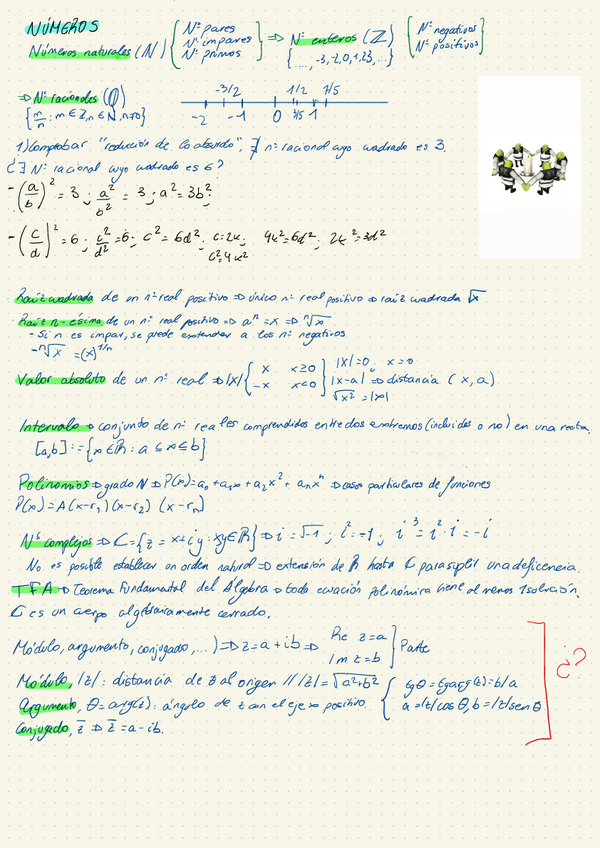 NÚMEROS
Números naturales (N) { Nº pares
Nº impares
Nº primos } ⇒ Nº enteros (Z) { Nº negativos
Nº positivos }
{..., -3,-2,0,1,2,3,...}
⇒ Nº racionales (Q)
{m/n : m ∈ Z, n ∈ N, n≠0}
-3/2 1/2 7/5
-2 -1 0 3/5 1
1) Comprobar "reducción de lo absurdo", ∄ nº racional cuyo cuadrado es 3.
¿∃ Nº racional cuyo cuadrado es 6?
- (a/b)² = 3 ; a²/b² = 3 ; a² = 3b²
- (c/d)² = 6 ; c²/d² = 6 ; c² = 6d² ; c = 2k, 4k² = 6d² ; 2k² = 3d²
c² = 4k²
Raíz cuadrada de un nº real positivo ⇒ único nº real positivo ⇒ raíz cuadrada √x
Raíz n-ésima de un nº real positivo ⇒ aⁿ = x ⇒ ⁿ√x
- Si n es impar, se puede extender a los nº negativos
- ⁿ√x = (x)^1/n
Valor absoluto de un nº real ⇒ |x| { x x≥0
-x x<0 } |x| = 0, x = 0
|x-a| ⇒ distancia (x, a)
√x² = |x|
Intervalo ⇒ conjunto de nº reales comprendidos entre dos extremos (incluidos o no) en una recta.
[a,b] := {x ∈ R : a ≤ x ≤ b}
Polinomios ⇒ grado N ⇒ P(x) = a₀ + a₁x + a₂x² + aₙxⁿ ⇒ casos particulares de funciones
P(x) = A(x-r₁)(x-r₂) (x-rₙ)
Nº complejos ⇒ C = {z = x+iy : x,y ∈ R} ⇒ i = √-1 ; i² = -1 ; i³ = i²·i = -i
No es posible establecer un orden natural ⇒ extensión de R hasta C para suplir una deficiencia.
TFA ⇒ Teorema Fundamental del Álgebra ⇒ toda ecuación polinómica tiene al menos 1 solución.
C es un cuerpo algebraicamente cerrado.
Módulo, argumento, conjugado, ...) ⇒ z = a + ib ⇒ Re z = a
Im z = b ] Parte
Módulo, |z| : distancia de z al origen // |z| = √a²+b²
Argumento, θ = arg(z) : ángulo de z con el eje x positivo. { tg θ = tg arg(z) = b/a
a = |z| cos θ, b = |z| sen θ
Conjugado, z̄ ⇒ z̄ = a - ib.
¿?